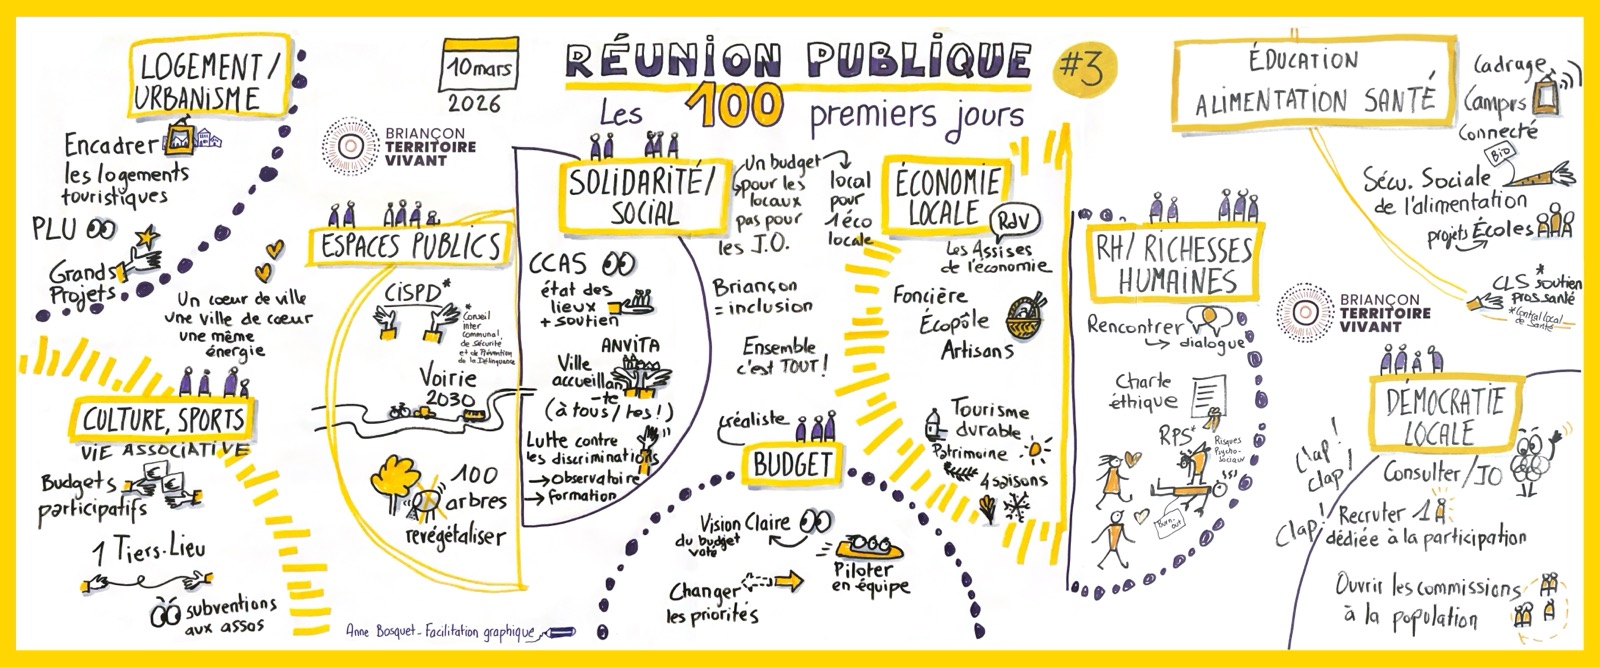 RÉUNION PUBLIQUE
#3
Les 100 premiers jours
10 mars
2026
BRIANÇON
TERRITOIRE
VIVANT
LOGEMENT /
URBANISME
Encadrer
les logements
touristiques
PLU
Grands
Projets
Un cœur de ville
une ville de cœur
une même
énergie
CULTURE, SPORTS
VIE ASSOCIATIVE
Budgets
participatifs
1 Tiers-Lieu
subventions
aux assos
ESPACES PUBLICS
CiSPD*
*Conseil
inter
communal
de Sécurité
et de Prévention
de la Délinquance
Voirie
2030
100
arbres
revégétaliser
SOLIDARITÉ/
SOCIAL
CCAS
état des
lieux
+ soutien
ANVITA
Ville
accueillan
-te
(à tous/tes!)
Lutte contre
les discriminations
→ Observatoire
→ formation
Un budget
pour les
locaux
pas pour
les J.O.
local
pour
1 éco
locale
Briançon
= inclusion
Ensemble
c'est TOUT!
ÉCONOMIE
LOCALE
RdV
Les Assises
de l'économie
Foncière
Écopôle
Artisans
Tourisme
durable
Patrimoine
4 saisons
réaliste
BUDGET
Vision Claire
du budget
voté
Changer
les priorités
Piloter
en équipe
RH/ RICHESSES
HUMAINES
Rencontrer
dialogue
Charte
éthique
RPS*
Risques
Psycho-
sociaux
Burn-out
ÉDUCATION
ALIMENTATION SANTÉ
Cadrage
Campus
Connecté
Bio
Sécu. Sociale
de l'alimentation
projets Écoles
CLS* soutien
pros santé
*Contrat local
de Santé
BRIANÇON
TERRITOIRE
VIVANT
DÉMOCRATIE
LOCALE
Clap!
clap!
Clap!
Consulter/JO
Recruter 1
dédiée à la participation
Ouvrir les commissions
à la population
Anne Bosquet - Facilitation graphique